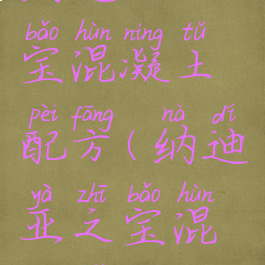 bǎo hùn níng tǔ
宝混凝土
pèi fāng nà dí
配方(纳迪
yà zhī bǎo hùn
亚之宝混